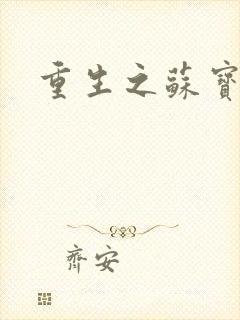 重生之蘇寶
齊安